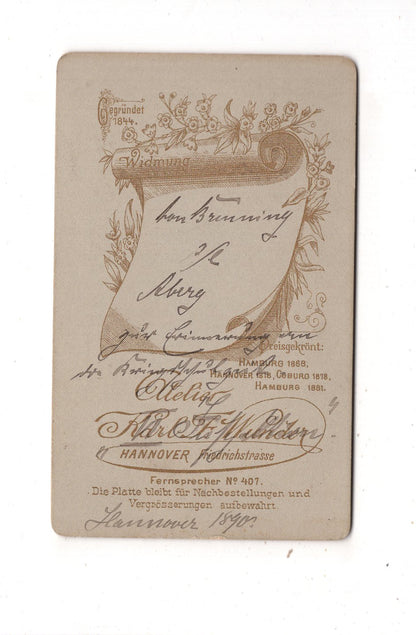 Gegründet
1844.
Widmung
von Brenning
s/l
Aberg
zur Erinnerung an
die Kriegsschulzeit
Preisgekrönt:
HAMBURG 1868,
HANNOVER 1818, COBURG 1818,
HAMBURG 1881.
Atelier
Karl F. Wunder
HANNOVER Friedrichstrasse
Fernsprecher No 407.
Die Platte bleibt für Nachbestellungen und
Vergrösserungen aufbewahrt
Hannover 1890.